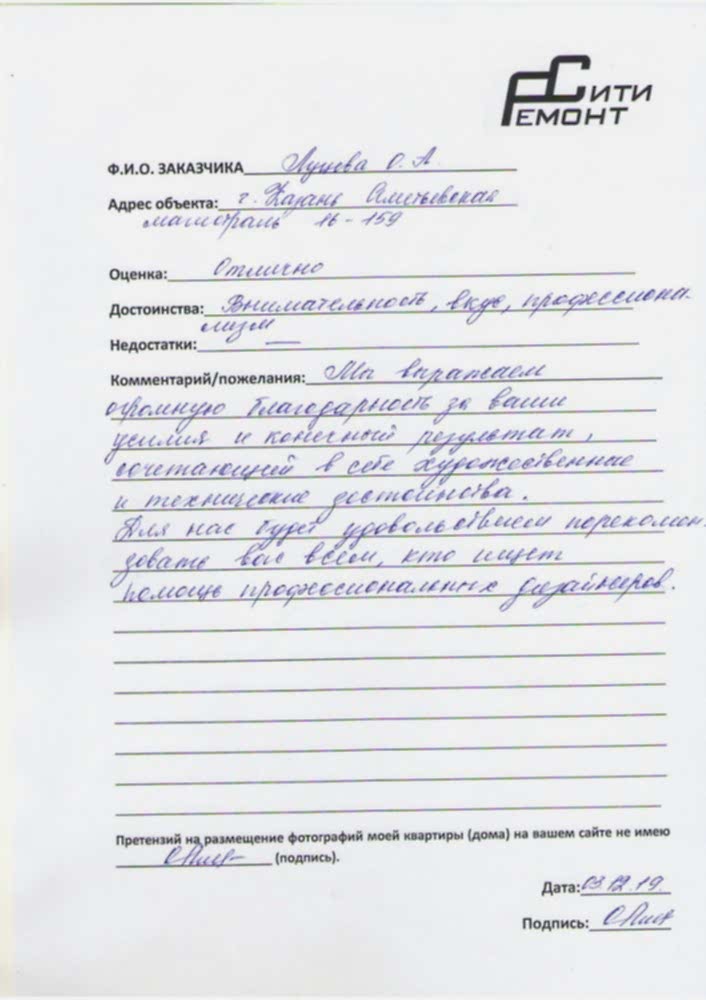 СИТИ
РЕМОНТ
Ф.И.О. ЗАКАЗЧИКА О. А.
Адрес объекта: г. Казань Аметьевская
магистраль 16-159
Оценка: Отлично
Достоинства: Внимательность, вкус, профессиона-
лизм
Недостатки: —
Комментарий/пожелания: Мы выражаем
огромную благодарность за ваши
усилия и конечный результат,
сочетающий в себе художественные
и технические достоинства.
Для нас будет удовольствием порекомен-
довать вас всем, кто ищет
помощь профессиональных дизайнеров.
Претензий на размещение фотографий моей квартиры (дома) на вашем сайте не имею
(подпись).
Дата: 03.12.19.
Подпись: